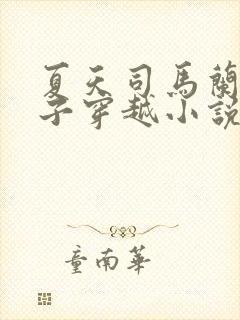 夏天司馬蘭
子穿越小說
童南華